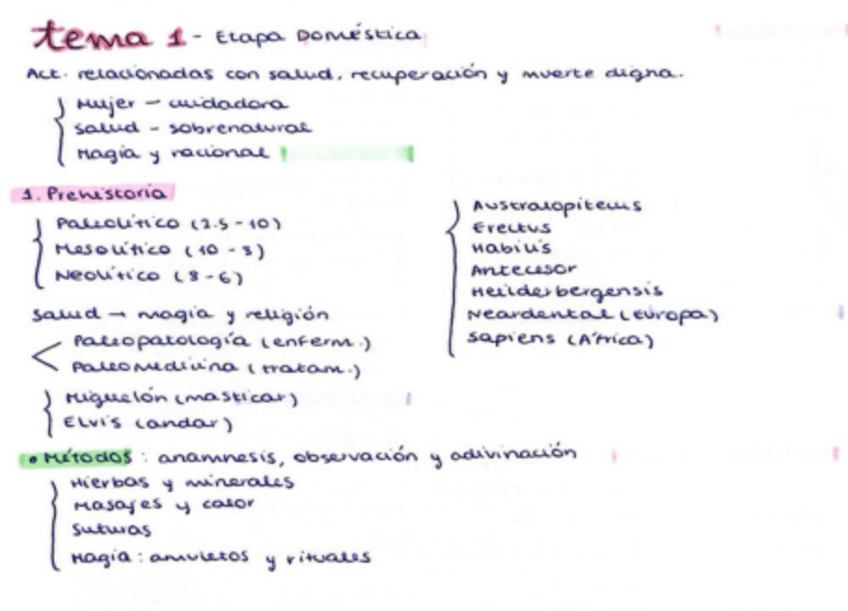 tema 1 - Etapa Doméstica
Act. relacionadas con salud, recuperación y muerte digna.
Mujer - cuidadora
Salud - sobrenatural
Magia y racional
1. Prehistoria
Paleolítico (2.5 - 10)
Mesolítico (10 - 8)
Neolítico (8 - 6)
Salud → magia y religión
Paleopatología (enferm.)
Paleomedicina (tratam.)
Miguelón (masticar)
Elvis (andar)
Australopitecus
Erectus
Habilis
Antecesor
Heilderbergensis
Neardental (Europa)
Sapiens (África)
• Métodos: anamnesis, observación y adivinación
Hierbas y minerales
Masajes y calor
Suturas
Magia: amuletos y rituales